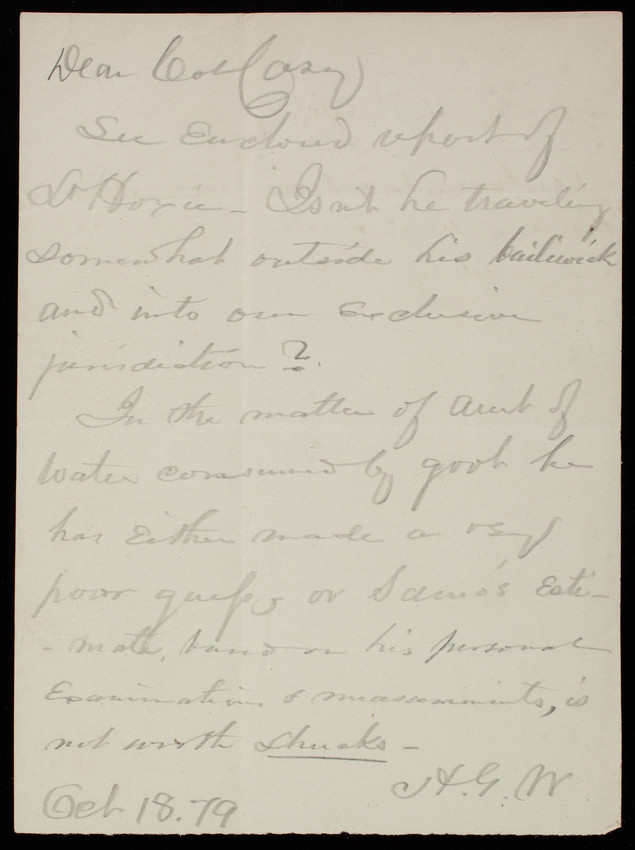 Dear Col Casey
See Enclosed report of
Lt Hoxie - Isn't he traveling
somewhat outside his bailiwick
and into our Exclusive
jurisdiction ?
In the matter of Amt of
Water consumed by govt he
has Either made a very
poor guess or Sam's Esti-
- mate, based on his personal
Examination & measurements, is
not worth shucks -
A. G. W
Oct 18. 79